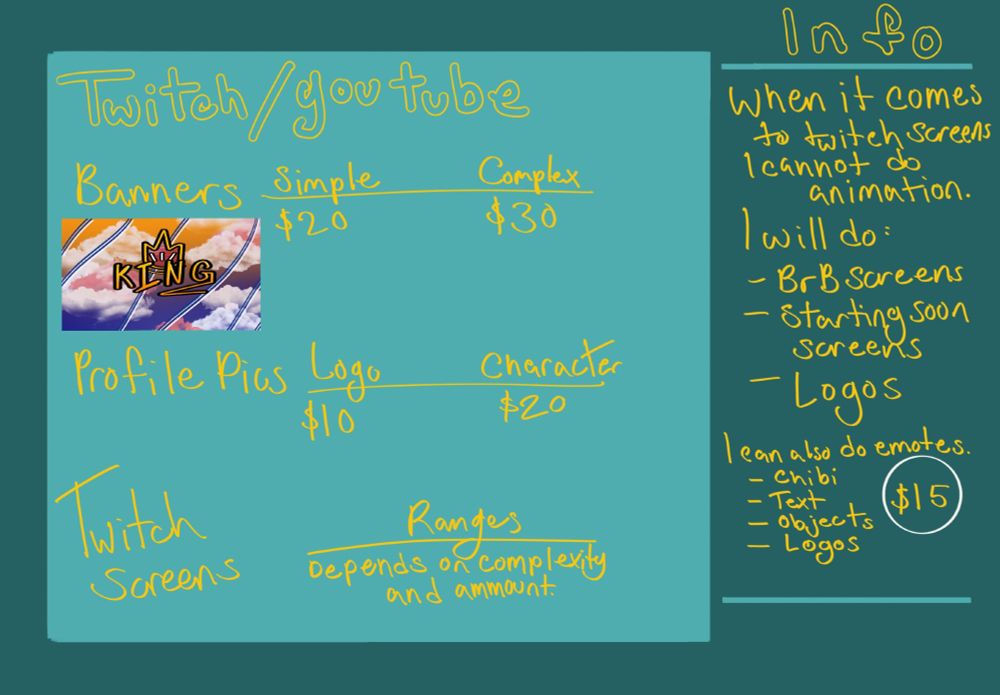 Twitch/youtube
Banners Simple Complex
$20 $30
KING
Profile Pics Logo Character
$10 $20
Twitch
Screens
Ranges
Depends on complexity
and ammount.
Info
When it comes
to twitch screens
I cannot do
animation.
I will do:
- BrB screens
- Starting soon
screens
- Logos
I can also do emotes.
- Chibi
- Text
- Objects
- Logos
$15